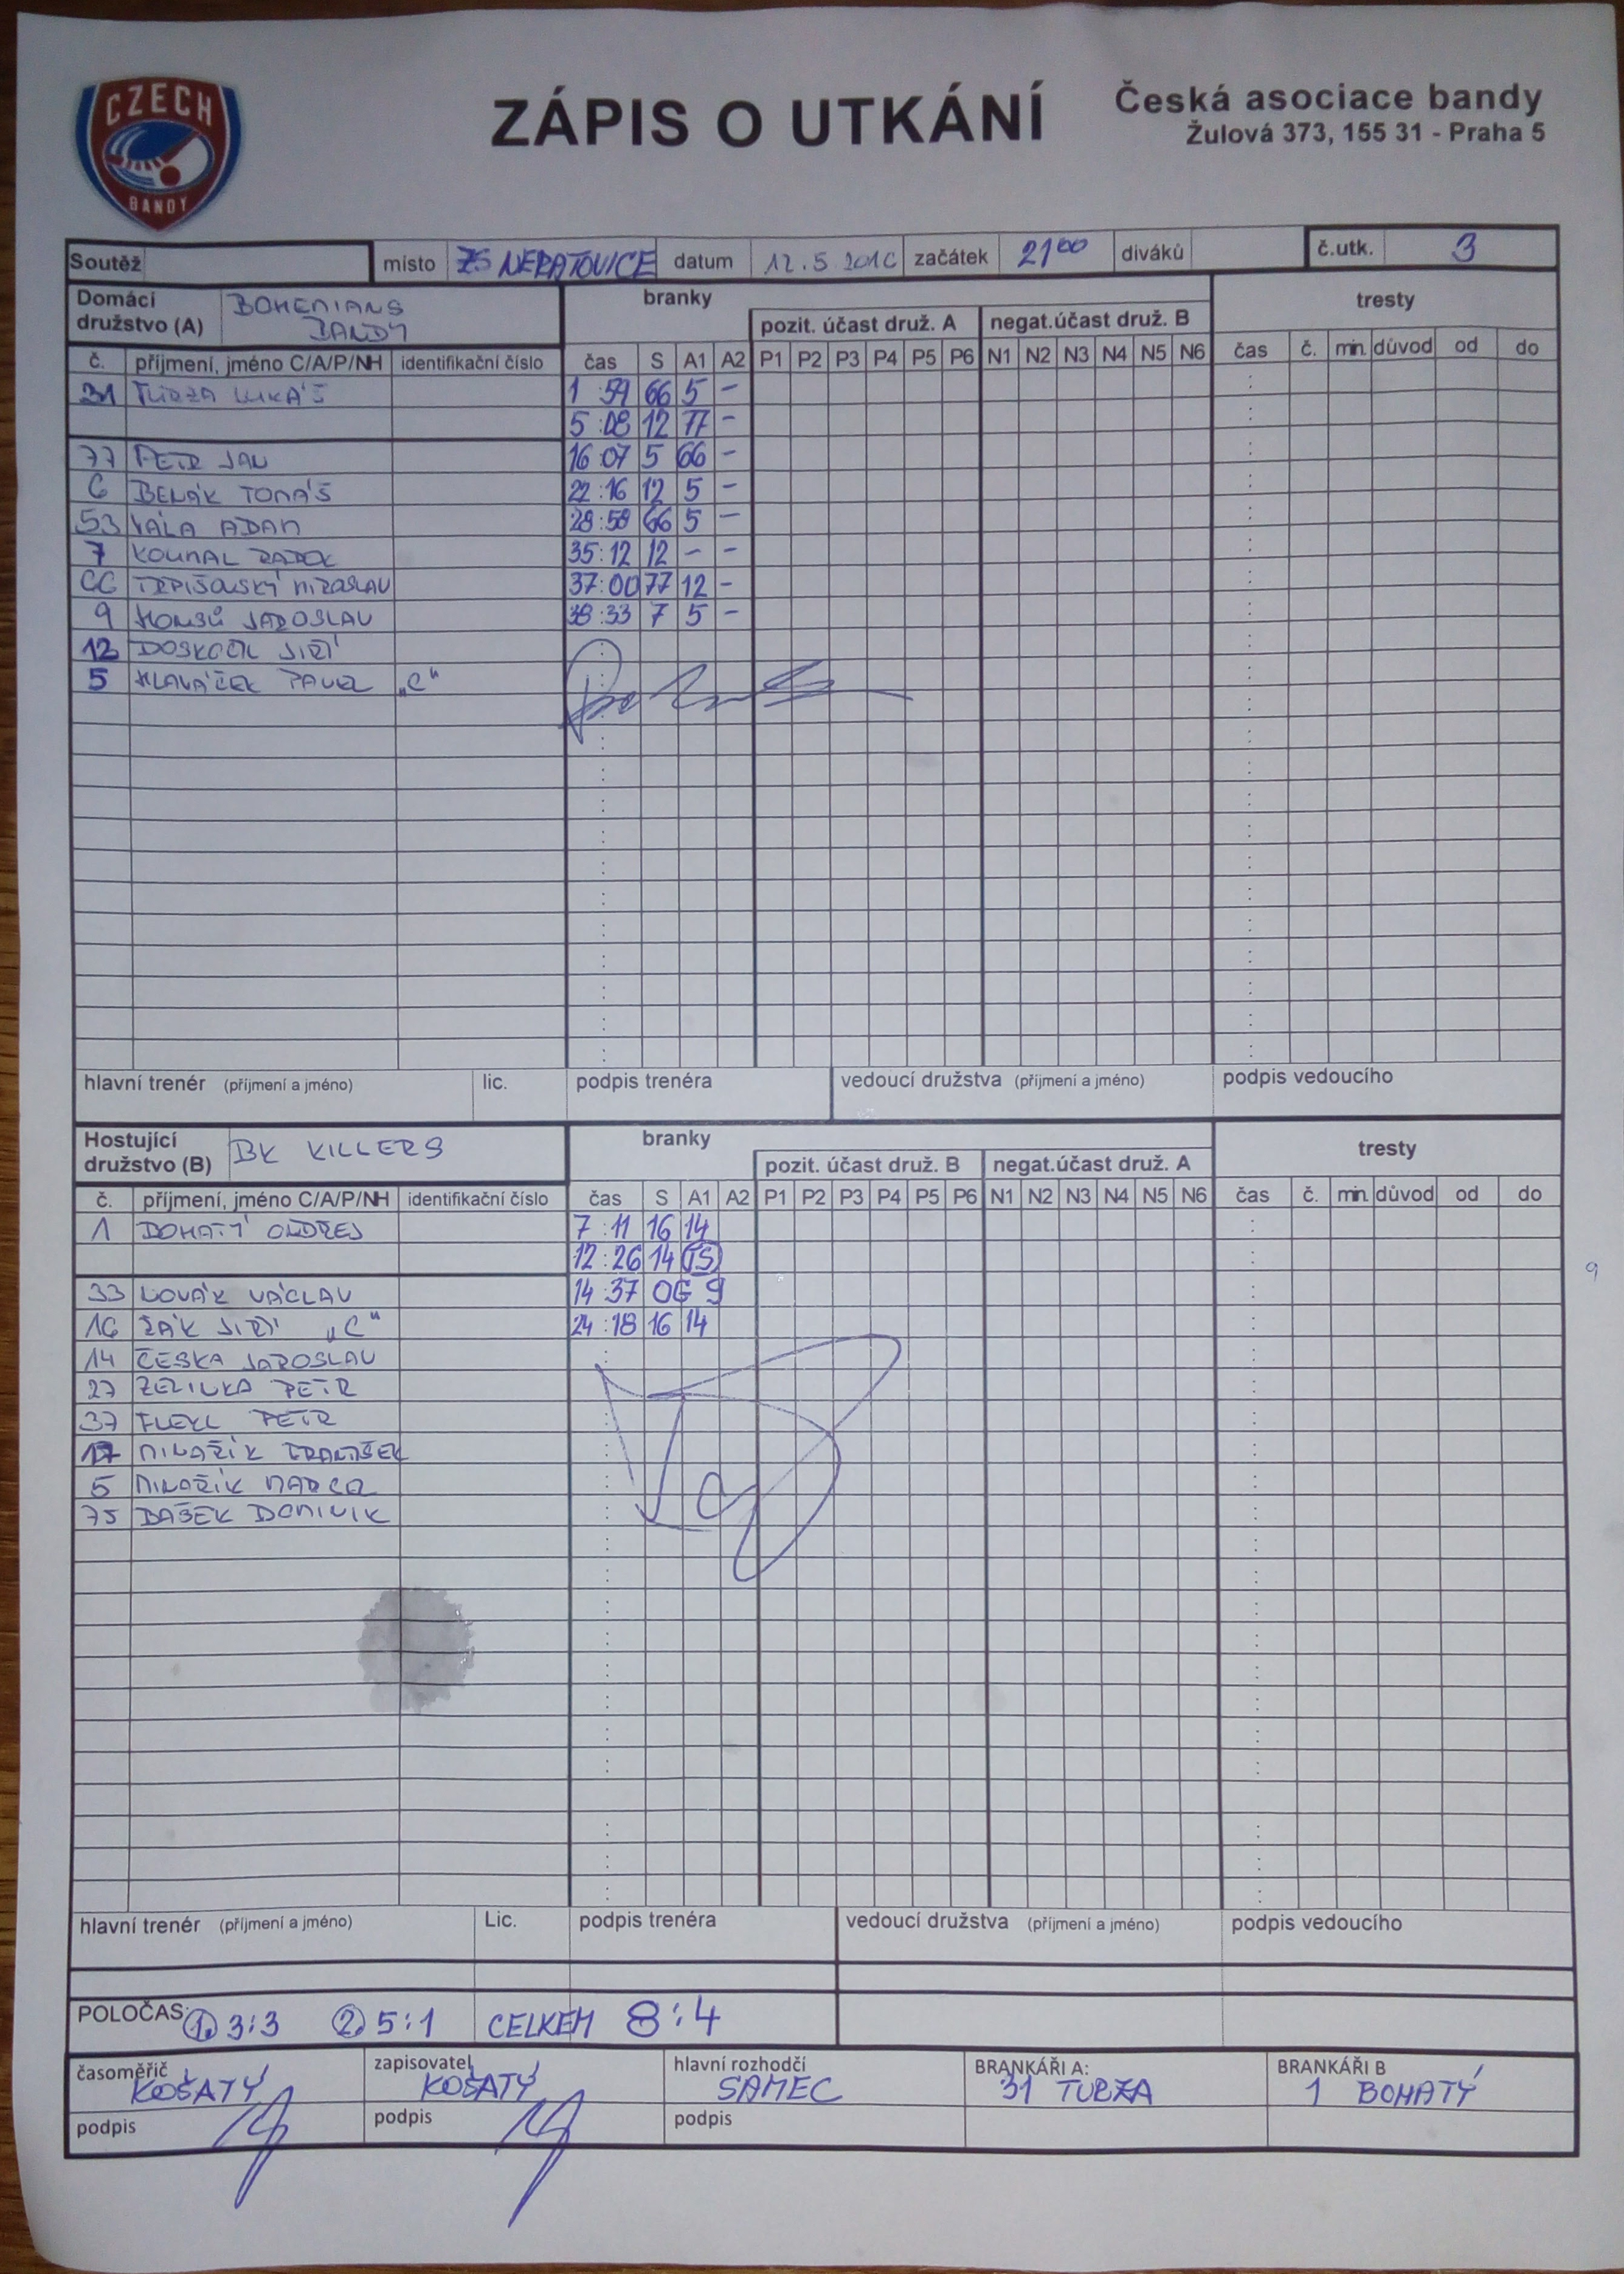 CZECH
BANDY
ZÁPIS O UTKÁNÍ
Česká asociace bandy
Žulová 373, 155 31 - Praha 5
Soutěž místo ZS NERATOVICE datum 12.5.2016 začátek 21 00 diváků č.utk. 3
Domácí družstvo (A) BOHEMIANS BANDY branky tresty
pozit. účast druž. A negat.účast druž. B
č. příjmení, jméno C/A/P/NH identifikační číslo čas S A1 A2 P1 P2 P3 P4 P5 P6 N1 N2 N3 N4 N5 N6 čas č. min. důvod od do
31 TURZA LUKÁŠ 1:59 66 5 -
5:08 12 77 -
77 PETR JAN 16:07 5 66 -
6 BENÁK TOMÁŠ 22:16 12 5 -
53 VÁLA ADAM 28:58 66 5 -
7 KOUHAL RADEK 35:12 12 - -
66 TRPIŠOVSKÝ MIROSLAV 37:00 77 12 -
9 HOMSŮ JAROSLAV 38:33 7 5 -
12 DOSKOČIL JIŘÍ
5 HLAVÁČEK PAVEL "C"
hlavní trenér (příjmení a jméno) lic. podpis trenéra vedoucí družstva (příjmení a jméno) podpis vedoucího
Hostující družstvo (B) BK KILLERS branky tresty
pozit. účast druž. B negat.účast druž. A
č. příjmení, jméno C/A/P/NH identifikační číslo čas S A1 A2 P1 P2 P3 P4 P5 P6 N1 N2 N3 N4 N5 N6 čas č. min. důvod od do
1 BOHATÝ ONDŘEJ 7:11 16 14
12:26 14 TS
33 NOVÁK VÁCLAV 14:37 OG 9
16 ŽÁK JIŘÍ "C" 24:18 16 14
14 ČESKA JAROSLAV
27 ZELINKA PETR
37 FLEKL PETR
17 MINAŘÍK FRANTIŠEK
5 MINAŘÍK MARCEL
75 BAŠEK DOMINIK
9
hlavní trenér (příjmení a jméno) Lic. podpis trenéra vedoucí družstva (příjmení a jméno) podpis vedoucího
POLOČAS: 1. 3:3 2. 5:1 CELKEM 8:4
časoměřič KOŠATÝ zapisovatel KOŠATÝ hlavní rozhodčí SAMEC BRANKÁŘI A: 31 TURZA BRANKÁŘI B 1 BOHATÝ
podpis podpis podpis